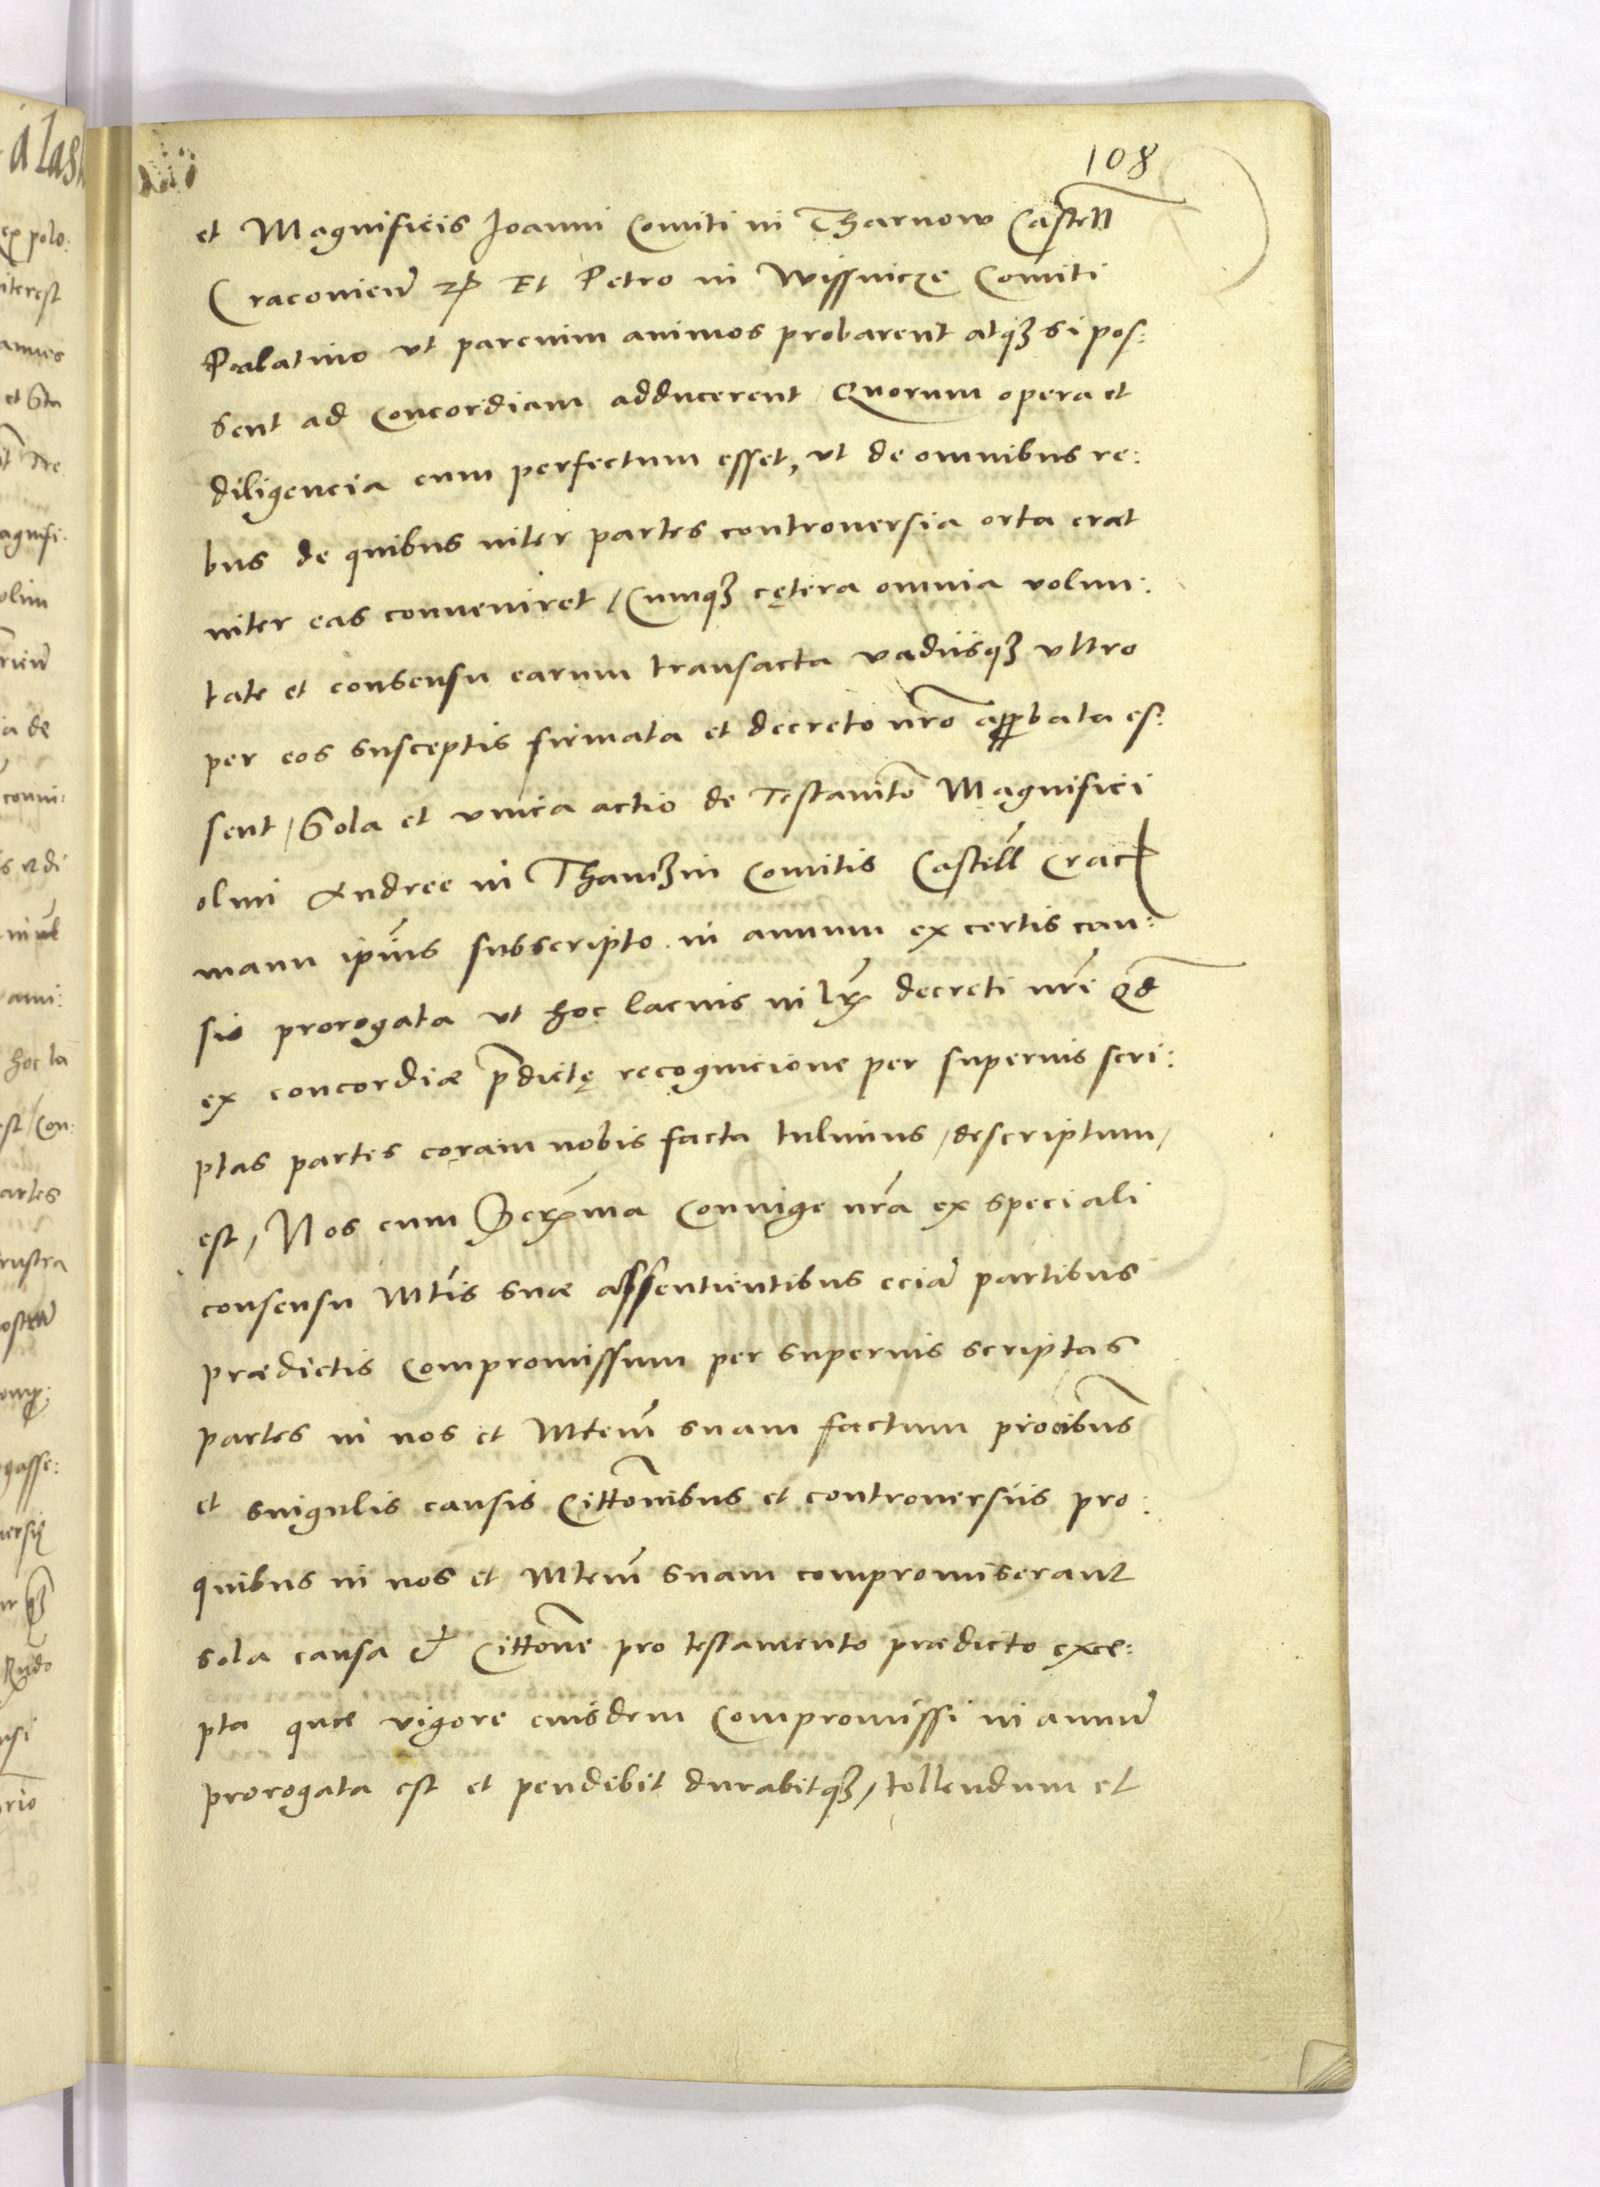 108
et Magnificis Joanni Comiti in Tharnow Castell
Cracovien̄ Et Petro in Wissnicze Comiti
Palatino ut parcium animos probarent atqȝ si pos:
sent ad concordiam adducerent Quorum opera et
diligencia cum perfectum esset, ut de omnibus re:
bus de quibus inter partes controversia orta erat
inter eas conveniret / Cumqȝ cętera omnia volun:
tate et consensu earum transacta vadiisqȝ ultro
per eos susceptis firmata et decreto nr̄o approbata es:
sent / Sola et unica actio de Testamt̄o Magnifici
olim Andree in Thanczin Comitis Castell̄ Crac
manu ip̄ius subscripto in annum ex certis cau:
sis prorogata ut hoc lacius in lr̄is decreti nr̄i Qd̄
ex concordiæ p̄dictę recognicione per superius scri:
ptas partes coram nobis facta tulimus / descriptum /
est, Nos cum Serma Coniuge nr̄a ex speciali
consensu Mt̄is suæ assentientibus eciam̄ partibus
prædictis Compromissum per superius scriptas
partes in nos et Mtem̄ suam factum pro oībus
et singulis causis Cittōnibus et controversiis pro:
quibus in nos et Mtem̄ suam compromiserant
sola causa et Cittōne pro testamento prædicto exce:
pta quæ vigore eiusdem Compromissi in annum̄
prorogata est et pendebit durabitqȝ / tollendum et